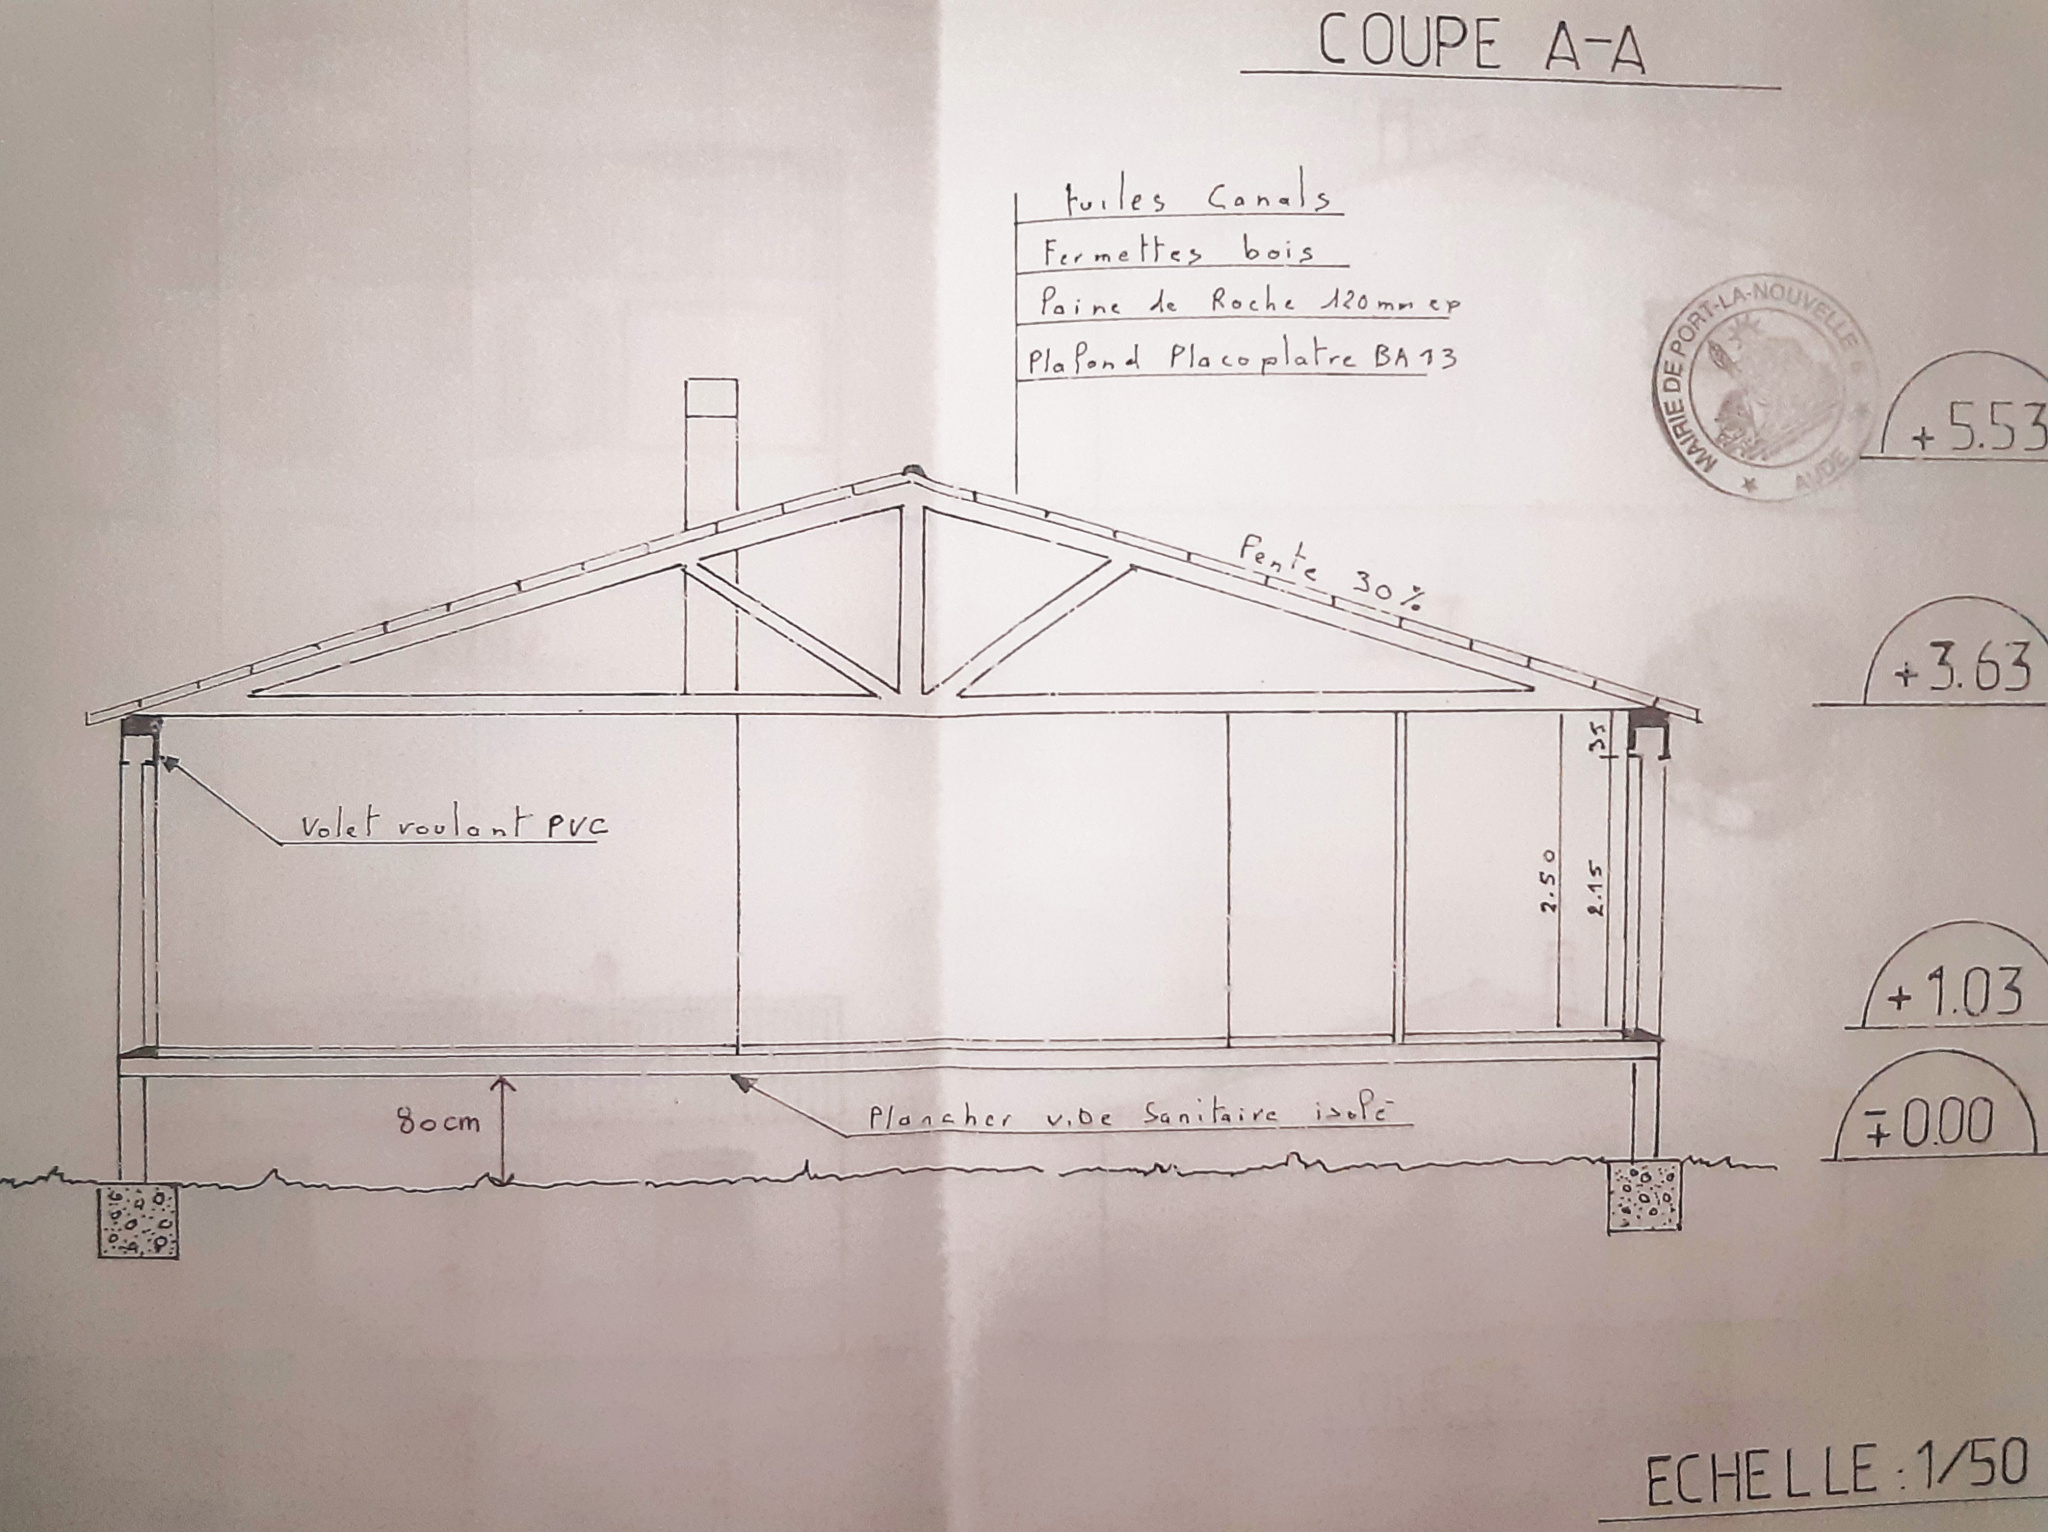 COUPE A-A
tuiles Canals
Fermettes bois
Laine de Roche 120mm ep
Plafond Placoplatre BA 13
MAIRIE DE PORT-LA-NOUVELLE
AUDE
+5.53
Pente 30%
+3.63
35
Volet roulant PVC
2.50
2.15
+1.03
80cm
Plancher vide Sanitaire isolé
∓0.00
ECHELLE : 1/50